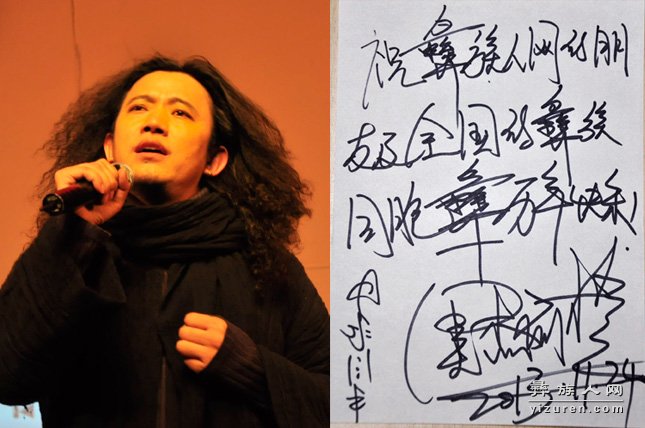 祝彝族人网的朋
友及全国的彝族
同胞彝历年快乐!
2013.11.24
彝族人网
yizuren.com